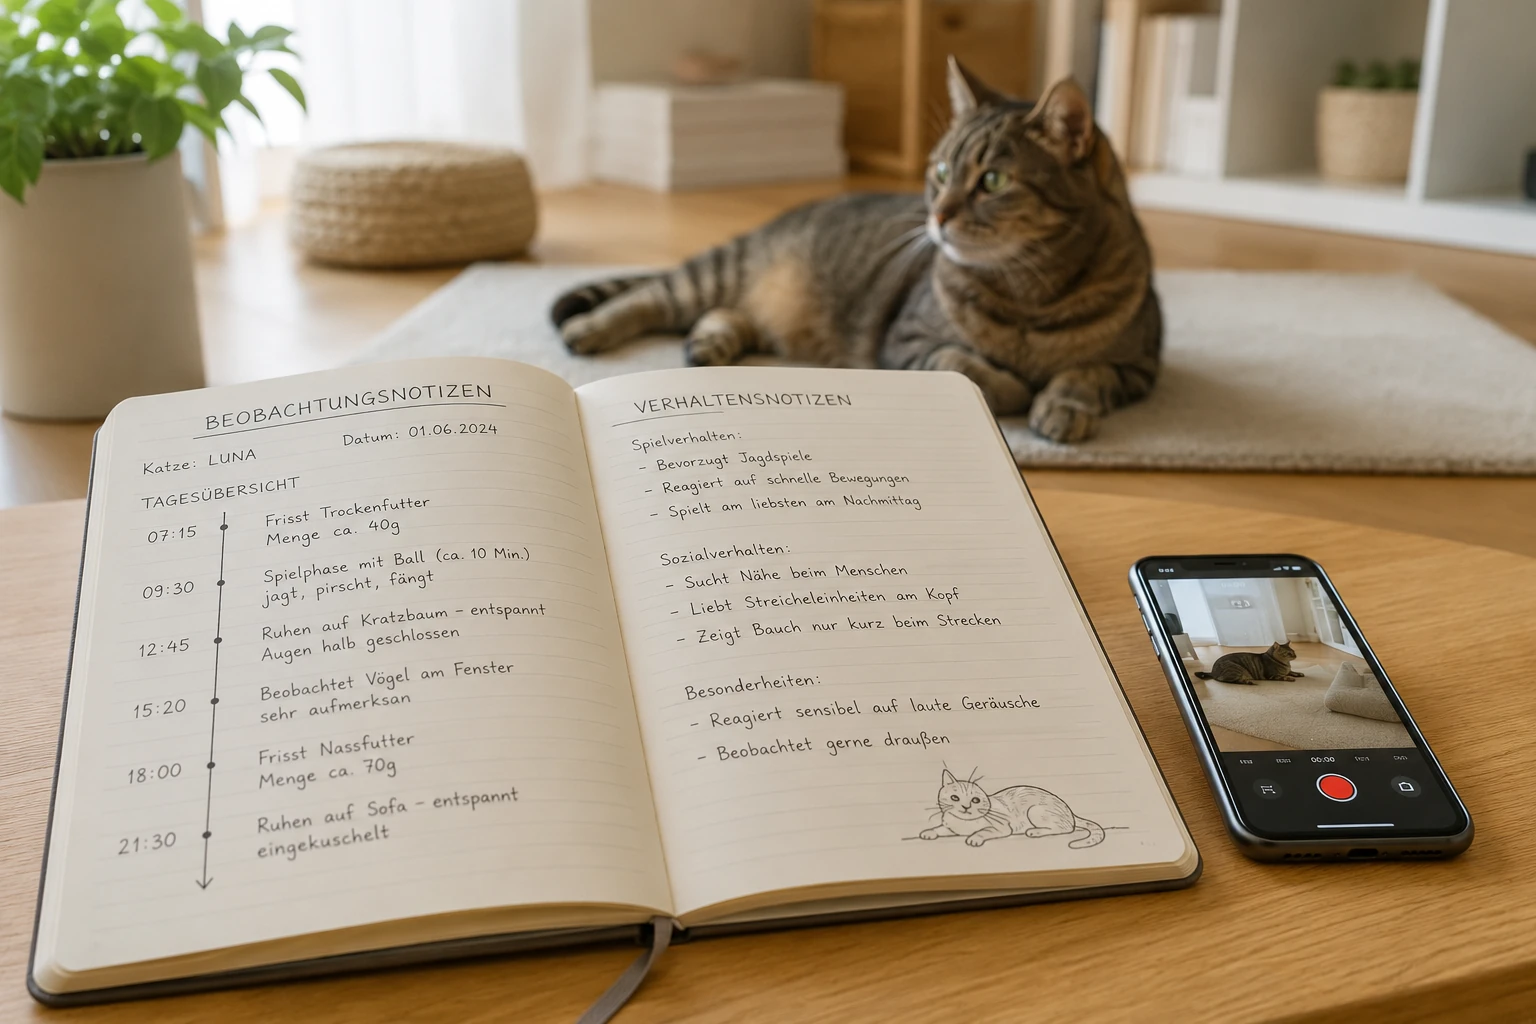 BEOBACHTUNGSNOTIZEN
Datum: 01.06.2024
Katze: LUNA
TAGESÜBERSICHT
07:15 Frisst Trockenfutter
Menge ca. 40g
09:30 Spielphase mit Ball (ca. 10 Min.)
jagt, pirscht, fängt
12:45 Ruhen auf Kratzbaum – entspannt
Augen halb geschlossen
15:20 Beobachtet Vögel am Fenster
sehr aufmerksan
18:00 Frisst Nassfutter
Menge ca. 70g
21:30 Ruhen auf Sofa – entspannt
eingekuschelt
VERHALTENSNOTIZEN
Spielverhalten:
– Bevorzugt Jagdspiele
– Reagiert auf schnelle Bewegungen
– Spielt am liebsten am Nachmittag
Sozialverhalten:
– Sucht Nähe beim Menschen
– Liebt Streicheleinheiten am Kopf
– Zeigt Bauch nur kurz beim Strecken
Besonderheiten:
– Reagiert sensibel auf laute Geräusche
– Beobachtet gerne draußen
00:00